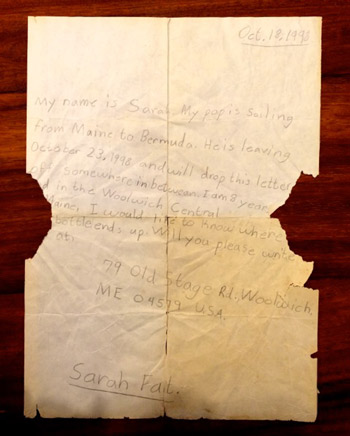 Oct. 18, 1998
My name is Sarah. My pop is sailing
from Maine to Bermuda. He is leaving
October 23, 1998 and will drop this letter
somewhere in between. I am 8 year
d in the Woolwich Central
aine. I would like to know where
bottle ends up. Will you please write
at:
79 Old Stage Rd. Woolwich,
ME 04579 USA.
Sarah Fait.